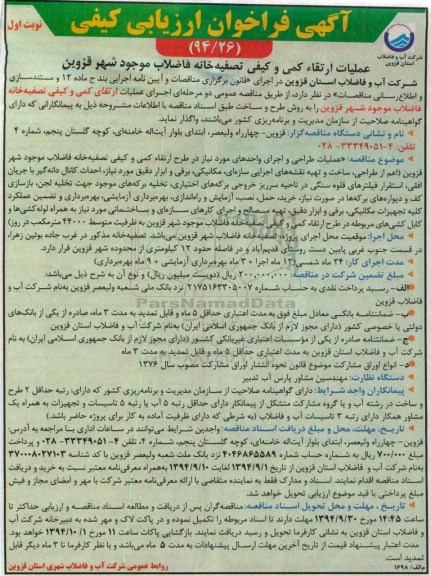 آگهی فراخوان ارزیابی کیفی
نوبت اول
(۹۴/۲۶)
شرکت آب و فاضلاب
استان قزوین
عملیات ارتقاء کمی و کیفی تصفیه‌خانه فاضلاب موجود شهر قزوین
شرکت آب و فاضلاب استان قزوین در اجرای «قانون برگزاری مناقصات و آیین نامه اجرایی بند ج ماده ۱۲ و مستندسازی
و اطلاع‌رسانی مناقصات» در نظر دارد، از طریق مناقصه عمومی دو مرحله‌ای اجرای عملیات ارتقای کمی و کیفی تصفیه‌خانه
فاضلاب موجود شهر قزوین را به روش طرح و ساخت طبق اسناد مناقصه با اطلاعات مشروحه ذیل به پیمانکارانی که دارای
گواهینامه صلاحیت از سازمان مدیریت و برنامه‌ریزی کشور می‌باشند، واگذار نماید.
نام و نشانی دستگاه مناقصه‌گزار: قزوین- چهارراه ولیعصر، ابتدای بلوار آیت‌اله خامنه‌ای، کوچه گلستان پنجم، شماره ۴
تلفن: ۴-۳۳۳۴۹۰۵۱-۰۲۸
موضوع مناقصه: «عملیات طراحی و اجرای واحدهای مورد نیاز در طرح ارتقاء کمی و کیفی تصفیه‌خانه فاضلاب موجود شهر
قزوین (اعم از طراحی، ساخت و تهیه نقشه‌های اجرایی سازه‌ای، مکانیکی، برقی و ابزار دقیق مورد نیاز، احداث کانال دانه‌گیر با جریان
افقی، استقرار فیلترهای قلوه سنگی در ناحیه سرریز خروجی برکه‌های اختیاری، تخلیه برکه‌های موجود جهت تخلیه لجن، بازسازی
کف و دیواره‌های برکه‌ها در صورت نیاز، خرید، حمل، نصب، آزمایش و راه‌اندازی، بهره‌برداری آزمایشی، بهره‌برداری و تضمین عملکرد
کلیه تجهیزات مکانیکی، برقی و ابزار دقیق، تهیه مصالح و اجرای کارهای سازه‌ای و ساختمانی مورد نیاز به همراه لوله‌کشی‌ها و
کابل کشی‌های مربوطه در طرح ارتقاء کمی و کیفی تصفیه‌خانه فاضلاب موجود شهر قزوین به ظرفیت متوسط ۴۴۰۰۰ مترمکعب در روز)
محل اجرا: موقعیت محل اجرای پروژه، تصفیه‌خانه فاضلاب شهر قزوین می‌باشد. تصفیه‌خانه مذکور در غرب جاده بوئین زهرا،
در قسمت جنوب غربی پایین دست روستای قدیم‌آباد و در فاصله حدود ۱۲ کیلومتری از محدوده شهر قزوین قرار دارد.
مدت اجرای کار: ۲۴ ماه شمسی (۱۲ ماه اجرا ۳۰ ماه بهره‌برداری آزمایشی ۹۰ ماه بهره‌برداری)
مبلغ تضمین شرکت در مناقصه: ۲۰۰,۰۰۰,۰۰۰ ریال (دویست میلیون ریال) و نوع آن به شرح ذیل می‌باشد:
الف- رسید پرداخت نقدی به حساب شماره ۲۱۷۵۱۶۳۳۰۵۰۰۷ نزد بانک ملی شعبه ولیعصر قزوین به‌نام شرکت آب و
فاضلاب قزوین
ب- ضمانتنامه بانکی معادل مبلغ فوق به مدت اعتباریی حداقل ۵ ماه و قابل تمدید به مدت ۳ ماه، صادره از یکی از بانک‌های
دولتی یا خصوصی کشور (دارای مجوز لازم از بانک جمهوری اسلامی ایران) به‌نام شرکت آب و فاضلاب استان قزوین
ج- ضمانتنامه صادره از یکی از مؤسسات اعتباری غیربانکی کشور (دارای مجوز لازم از بانک جمهوری اسلامی ایران) به نام
شرکت آب و فاضلاب استان قزوین به مدت اعتباری حداقل ۵ ماه و قابل تمدید به مدت ۳ ماه
د- انواع اوراق مشارکت موضوع قانون نحوه انتشار اوراق مشارکت مصوب سال ۱۳۷۶
دستگاه نظارت: مهندسین مشاور پارس آب تدبیر
پیمانکاران واجد شرایط: دارای گواهینامه صلاحیت از سازمان مدیریت و برنامه‌ریزی کشور که دارای: رتبه حداقل ۲ طرح
و ساخت در رشته آب و یا گروه مشارکت متشکل از پیمانکار دارای حداقل رتبه ۵ آب یا رتبه ۵ تاسیسات و تجهیزات به همراه یک
مشاور همکار دارای رتبه ۳ تاسیسات آب و فاضلاب (به شرطی که دارای ظرفیت آماده به کار برای پروژه حاضر باشد.)
تاریخ، مهلت، محل و مبلغ دریافت اسناد مناقصه: واجدین شرایط می‌توانند در ساعات اداری با مراجعه به آدرس:
قزوین- چهارراه ولیعصر، ابتدای بلوار آیت‌اله خامنه‌ای، کوچه گلستان پنجم، شماره ۴، تلفن ۴-۳۳۳۴۹۰۵۱-۰۲۸ و پرداخت
مبلغ ۷۰۰/۰۰۰ ریال به شماره حساب شماره ۴۰۴۶۸۶۵۵۸۹ نزد بانک ملت شعبه ولیعصر قزوین با کد شناسه ۳۷۰۰۰۸۰۲۷۱۰۳
به‌نام شرکت آب و فاضلاب استان قزوین از تاریخ ۱۳۹۴/۹/۱ لغایت ۱۳۹۴/۹/۱۰ به‌همراه معرفی‌نامه معتبر نسبت به خرید و دریافت
اسناد مناقصه اقدام نمایند. اسناد و مدارک فقط به نماینده متقاضی با ارائه معرفی‌نامه معتبر شرکت با مهر و امضای مجاز و فیش
مبلغ پرداختی با قید موضوع ارزیابی تحویل خواهد شد.
تاریخ، مهلت و محل تحویل اسناد مناقصه: مناقصه‌گران پس از دریافت و مطالعه اسناد مناقصه و ارزیابی حداکثر تا
ساعت ۱۴:۴۵ مورخ ۱۳۹۴/۹/۳۰ مهلت دارند تا اسناد مربوطه را تکمیل نموده و در پاکت لاک و مهر شده به دبیرخانه شرکت آب
و فاضلاب استان قزوین به نشانی کارفرما تحویل و رسید دریافت نمایند. بازگشایی پاکات ساعت ۱۱ مورخ ۱۳۹۴/۱۰/۱ خواهد بود.
مدت اعتبار پیشنهاد قیمت از تاریخ آخرین مهلت ارسال پیشنهادات به مدت ۵ ماه می‌باشد و با نظر کارفرما تا ۳ ماه دیگر قابل
تمدید است.
م الف/ ۱۶۹۸
روابط عمومی شرکت آب و فاضلاب شهری استان قزوین
ParsNamadData